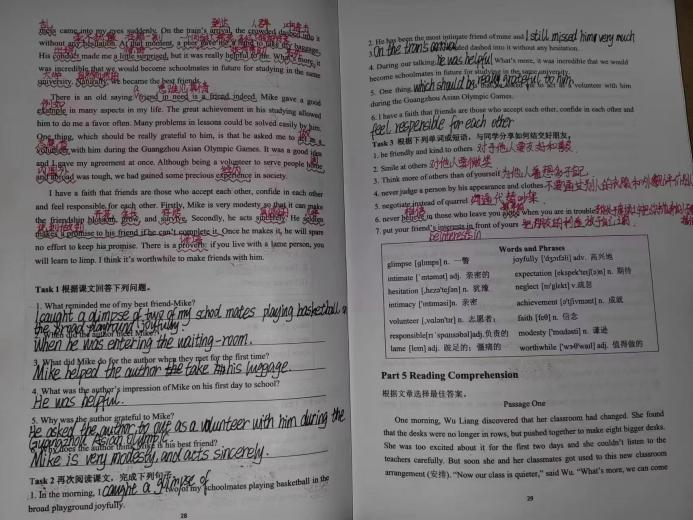 mess came into my eyes suddenly. On the train's arrival, the crowded dashed into it
without any hesitation. At that moment, a peer gave me a hand to take my baggage,
His conduct made me a little surprised, but it was really helpful to me. What's more, it
was incredible that we would become schoolmates in future for studying in the same
university. Naturally, we became the best friends.
There is an old saying: Friend in need is a friend indeed. Mike gave a good
example in many aspects in my life. The great achievement in his studying allowed
him to do me a favor often. Many problems in lessons could be solved easily by him.
One thing, which should be really grateful to him, is that he asked me to act as a
volunteer with him during the Guangzhou Asian Olympic Games. It was a good idea
and I gave my agreement at once. Although being a volunteer to serve people home
and abroad was tough, we had gained some precious experience in society.
I have a faith that friends are those who accept each other, confide in each other
and feel responsible for each other. Firstly, Mike is very modesty so that it can make
the friendship blossom, grow, and survive. Secondly, he acts sincerely. He seldom
makes a promise to his friend if he can't complete it. Once he makes it, he will spare
no effort to keep his promise. There is a proverb: if you live with a lame person, you
will learn to limp. I think it's worthwhile to make friends with him.
Task 1 根据课文回答下列问题。
1. What reminded me of my best friend-Mike?
I caught a glimpse of two of my school mates playing basketball in
the broad playground joyfully
2. When did the author meet Mike?
When he was entering the waiting-room.
3. What did Mike do for the author when they met for the first time?
Mike helped the author take his luggage.
4. What was the author's impression of Mike on his first day to school?
He was helpful.
5. Why was the author grateful to Mike?
He asked the author to act as a volunteer with him during the
Guangzhou Asian Olympic
6. Why does the author think Mike is his best friend?
Mike is very modesty, and acts sincerely.
Task 2 再次阅读课文，完成下列句子。
1. In the morning, I caught a glimpse of two of my schoolmates playing basketball in the
broad playground joyfully.
28
2. He has been the most intimate friend of mine and I still missed him very much
3. On the train's arrival crowded dashed into it without any hesitation.
4. During our talking, he was helpful. What's more, it was incredible that we would
become schoolmates in future for studying in the same university.
5. One thing, which should be really grateful to him, is that he asked me to act as a volunteer with him
during the Guangzhou Asian Olympic Games.
6. I have a faith that friends are those who accept each other, confide in each other and
feel responsible for each other
Task 3 根据下列单词或短语，与同学分享如何结交好朋友。
1. be friendly and kind to others 对于他人要友好和善
2. Smile at others 对他人要微笑
3. Think more of others than of yourself 为他人着想多于自己
4. never judge a person by his appearance and clothes.
5. negotiate instead of quarrel 沟通代替吵架
6. never believe in those who leave you alone when you are in trouble
7. put your friend's interests in front of yours
be interest in
Words and Phrases
glimpse [glɪmps] n. 一瞥 joyfully ['dʒɔɪfəli] adv. 高兴地
intimate ['ɪntəmət] adj. 亲密的 expectation [ekspek'teɪʃ(ə)n] n. 期待
hesitation [ˌhezɪ'teɪʃn] n. 犹豫 neglect [nɪ'glekt] v.疏忽
intimacy ['ɪntɪməsi]n. 亲密 achievement [ə'tʃiːvmənt] n. 成就
volunteer [ˌvɒlən'tɪr] n. 志愿者； faith [feɪθ] n. 信念
responsible[rɪ'spɒnsəbəl]adj.负责的 modesty ['mɒdəsti] n. 谦逊
lame [leɪm] adj. 跛足的；僵痛的 worthwhile ['wɜːθ'waɪl] adj. 值得做的
Part 5 Reading Comprehension
根据文章选择最佳答案。
Passage One
One morning, Wu Liang discovered that her classroom had changed. She found
that the desks were no longer in rows, but pushed together to make eight bigger desks.
She was too excited about it for the first two days and she couldn't listen to the
teachers carefully. But soon she and her classmates got used to this new classroom
arrangement (安排). "Now our class is quieter," said Wu. "What's more, we can come
29